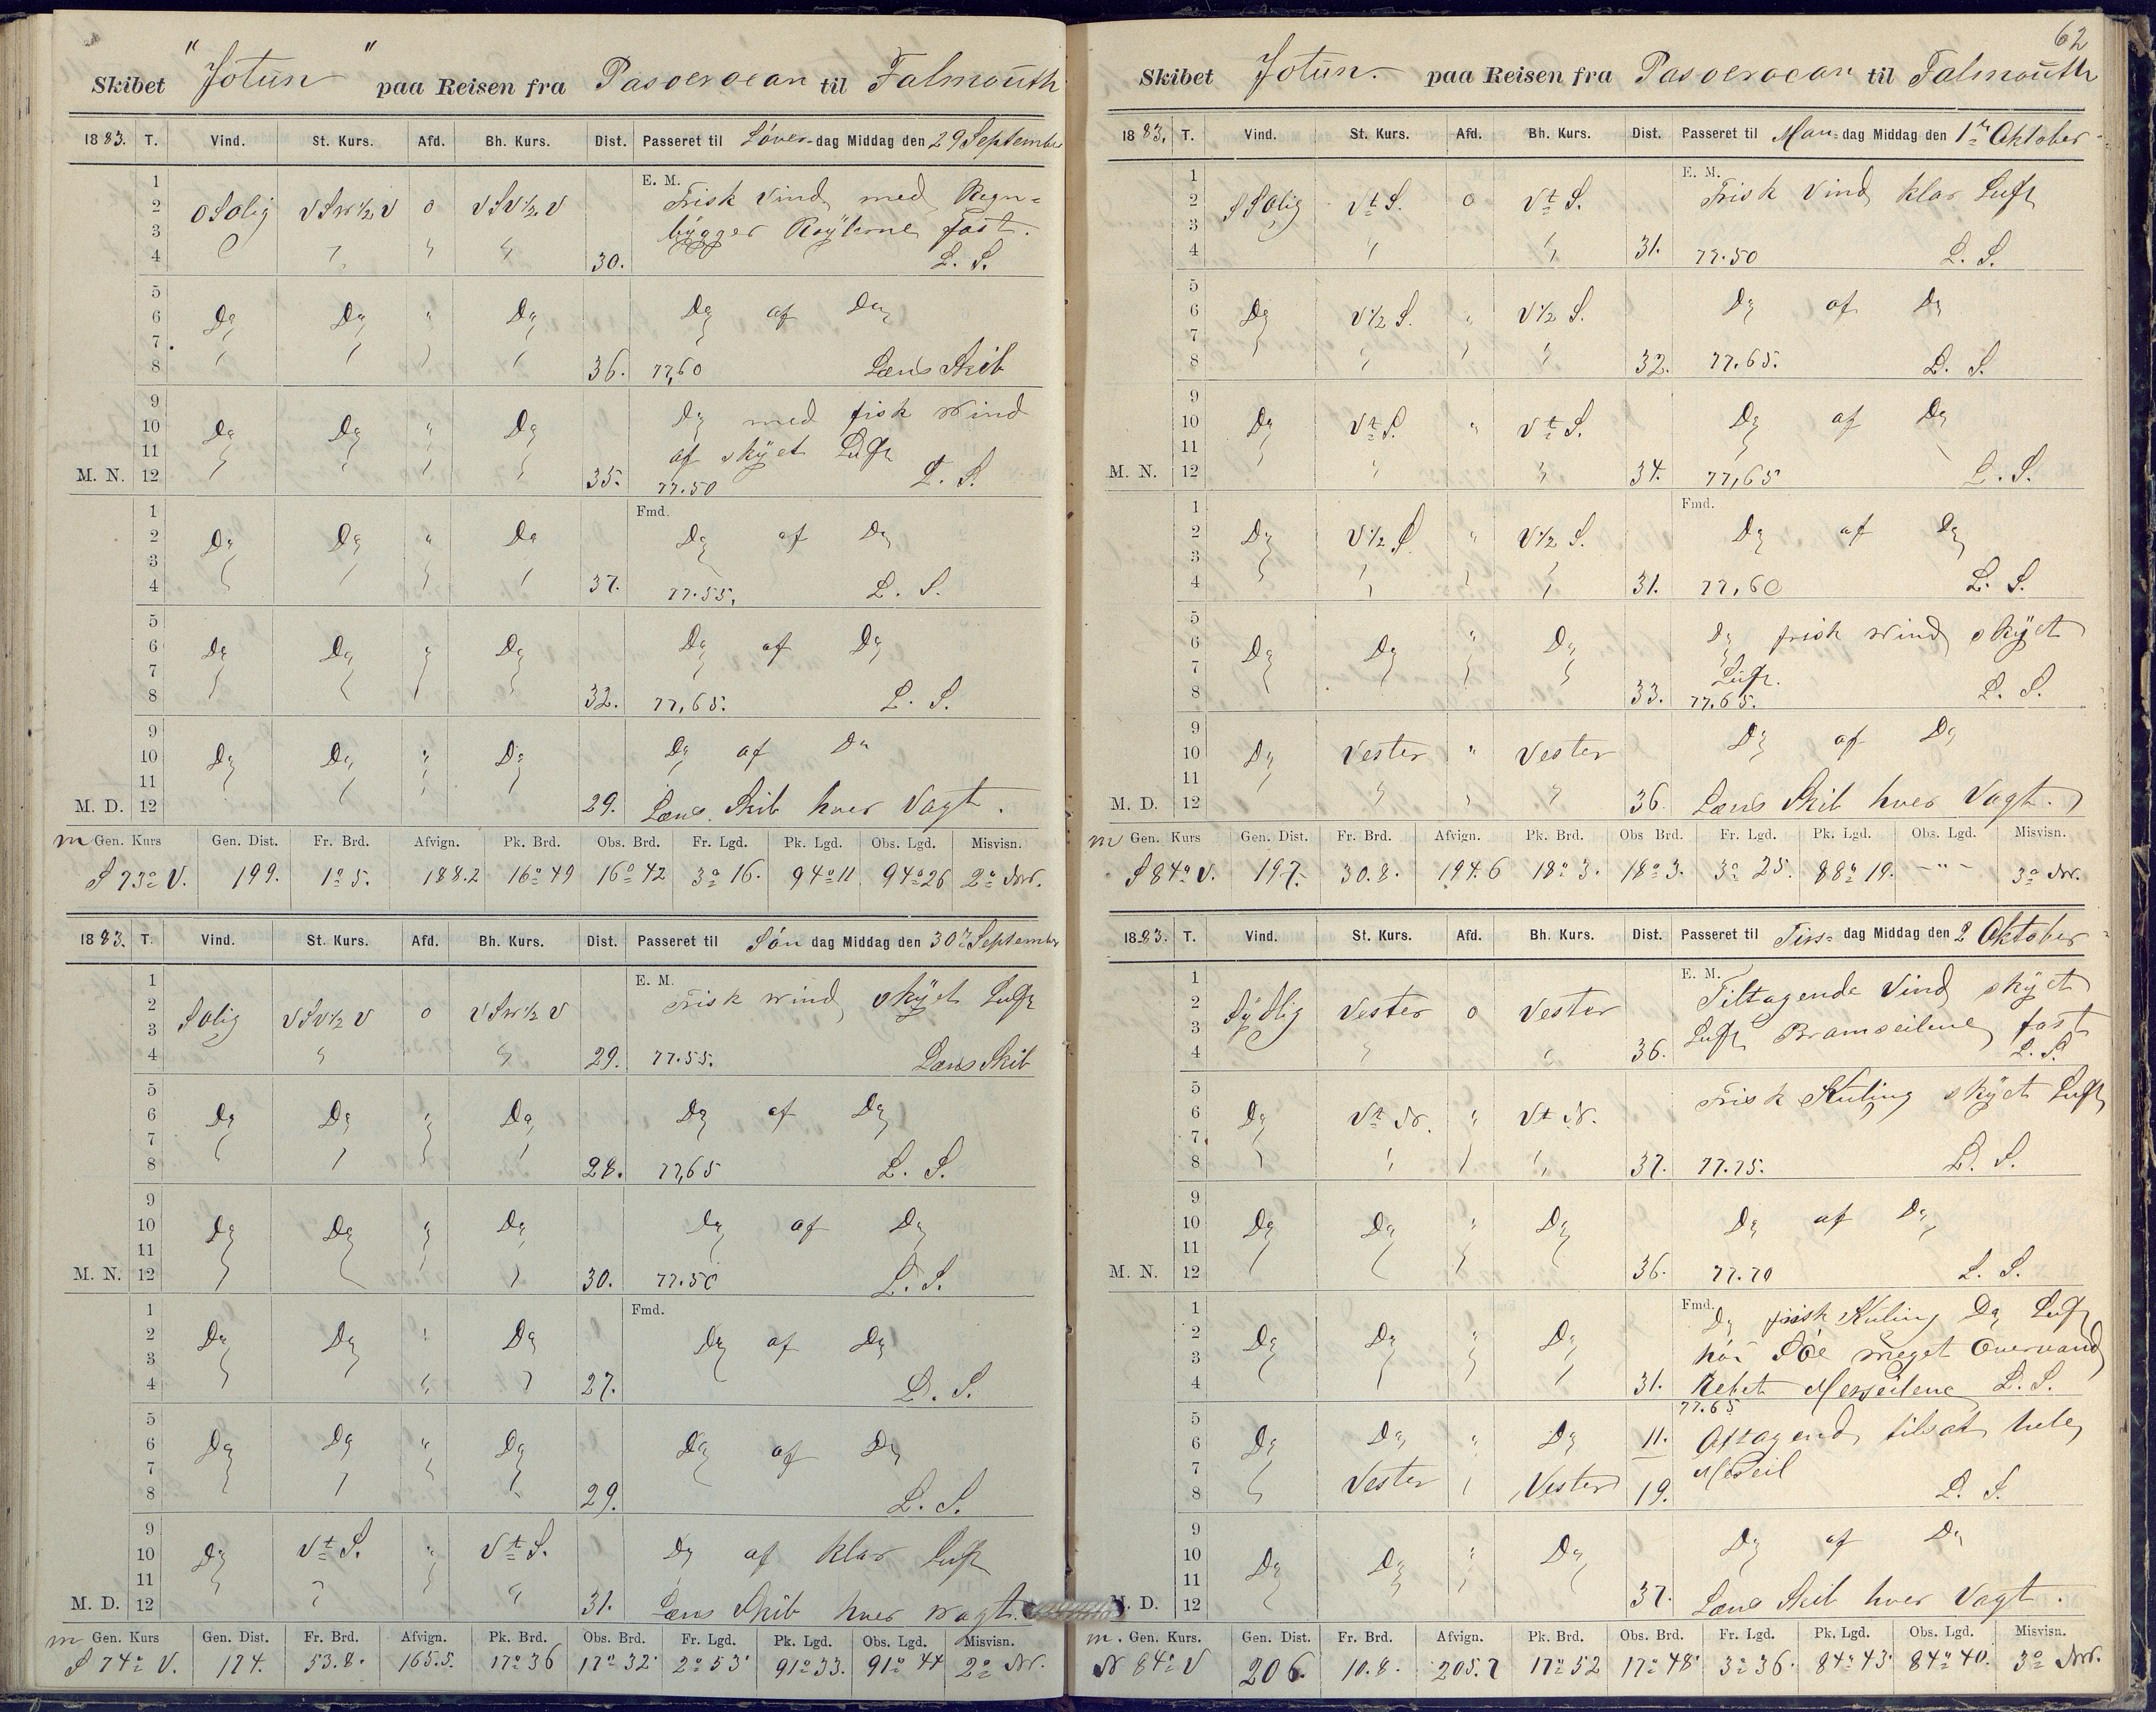 Skibet "Jotun" paa Reisen fra Pasoeroean til Falmouth
1883. T. Vind. St. Kurs. Afd. Bh. Kurs. Dist. Passeret til Löver-dag Middag den 29 September
1 E. M. Frisk Vind med Regn-
2 OSOlig VSW½V 0 VSV½V
3 bÿgger Röÿlerne fast.
4 30. L. S.
5
6 Do Do " Do Do af Do
7
8 36. 77,60 Læns Skib
9 Do med fisk Wind
10 Do Do " Do
11 af skÿet Luft
M. N. 12 35. 77.50 L. S.
1 Fmd.
2 Do Do " Do Do af Do
3
4 37. 77.55. L. S.
5
6 Do Do " Do Do af Do
7
8 32. 77,65. L. S.
9
10 Do Do " Do Do af Do
11
M. D. 12 29. Læns Skib hver Vagt.
m Gen. Kurs Gen. Dist. Fr. Brd. Afvign. Pk. Brd. Obs. Brd. Fr. Lgd. Pk. Lgd. Obs. Lgd. Misvisn.
S 73° V. 199. 1° 5. 188.2 16° 49 16° 42 3° 16. 94° 11 94° 26 2° NW.
1883. T. Vind. St. Kurs. Afd. Bh. Kurs. Dist. Passeret til Sön dag Middag den 30 September
1 E. M. Frisk Wind skÿet Luft
2 SOlig VSV½V 0 VSW½V
3
4 29. 77.55. Læns Skib
5
6 Do Do " Do Do af Do
7
8 28. 77,65 L. S.
9
10 Do Do " Do Do af Do
11
M. N. 12 30. 77.50 L. S.
1 Fmd.
2 Do Do " Do Do af Do
3
4 27. L. S.
5
6 Do Do " Do Do af Do
7
8 29. L. S.
9
10 Do Vt S. " Vt S. Do af klar Luft
11
M. D. 12 31. Læns Skib hver Wagt.
m Gen. Kurs Gen. Dist. Fr. Brd. Afvign. Pk. Brd. Obs. Brd. Fr. Lgd. Pk. Lgd. Obs. Lgd. Misvisn.
S 74° V. 174. 53.8. 165.5. 17° 36 17° 32' 2° 53' 91° 33. 91° 44 2° NW.
62
Skibet Jotun. paa Reisen fra Pasoeroean til Falmouth
1883, T. Vind. St. Kurs. Afd. Bh. Kurs. Dist. Passeret til Man-dag Middag den 1 Oktober
1 E. M. Frisk Vind klar Luft
2 SSOlig Vt S. 0 Vt S.
3
4 31. 77.50 L. S.
5
6 Do V½ S. " V½ S. Do af Do
7
8 32. 77.65. L. S.
9
10 Do Vt S. " Vt S. Do af Do
11
M. N. 12 34. 77,65 L. S.
1 Fmd.
2 Do V½ S " V½ S. Do af Do
3
4 31. 77,60 L. S.
5
6 Do Do " Do Do frisk Wind skÿet
7 Luft.
8 33. 77.65. L. S.
9
10 Do Vester " Vester Do af Do
11
M. D. 12 36. Læns Skib hver Vagt.
m Gen. Kurs Gen. Dist. Fr. Brd. Afvign. Pk. Brd. Obs Brd. Fr. Lgd. Pk. Lgd. Obs. Lgd. Misvisn.
S 84° V. 197. 30.8. 194.6 18° 3. 18° 3. 3° 25. 88° 19. -"- 3° NW.
1883. T. Vind. St. Kurs. Afd. Bh. Kurs. Dist. Passeret til Tirs- dag Middag den 2 Oktober
1 E. M. Tiltagende Vind skÿet
2 Sÿdlig Vester 0 Vester
3 Luft Bramseilene fast
4 36. L. S.
5 Frisk Kuling skÿet Luft
6 Do Vt N. " Vt N.
7
8 37. 77.75. L. S.
9
10 Do Do " Do Do af Do
11
M. N. 12 36. 77.70 L. S.
1 Fmd. Do frisk Kuling Do Luft
2 Do Do " Do
3 höi Söe meget Overvand
4 31. Rebet Merseilene L. S.
5 77.65
6 Do Do " Do 11. Aftagend tilsat hele
7 Merseil
8 Vester Vester 19. L. S.
9
10 Do Do " Do Do af Do
11
M. D. 12 37. Læns Skib hver Vagt.
m. Gen. Kurs. Gen. Dist. Fr. Brd. Afvign. Pk. Brd. Obs. Brd. Fr. Lgd. Pk. Lgd. Obs. Lgd. Misvisn.
N 84° V 206. 10.8. 205.7 17° 52 17° 48' 3° 36. 84° 43' 84° 40. 3° NW.